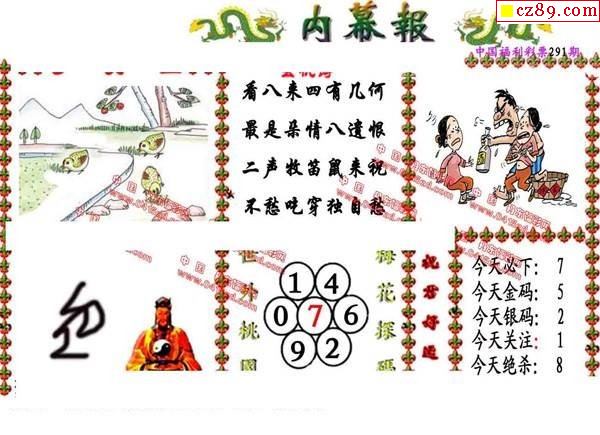 cz89.com
内幕報
中国福利彩票291期
看八来四有几何
最是柔情八遗恨
二声牧笛鼠来祝
不愁吃穿独自愁
世外桃园
1 4
0 7 6
9 2
梅花探码
祝君好运
今天必下: 7
今天金码: 5
今天银码: 2
今天关注: 1
今天绝杀: 8